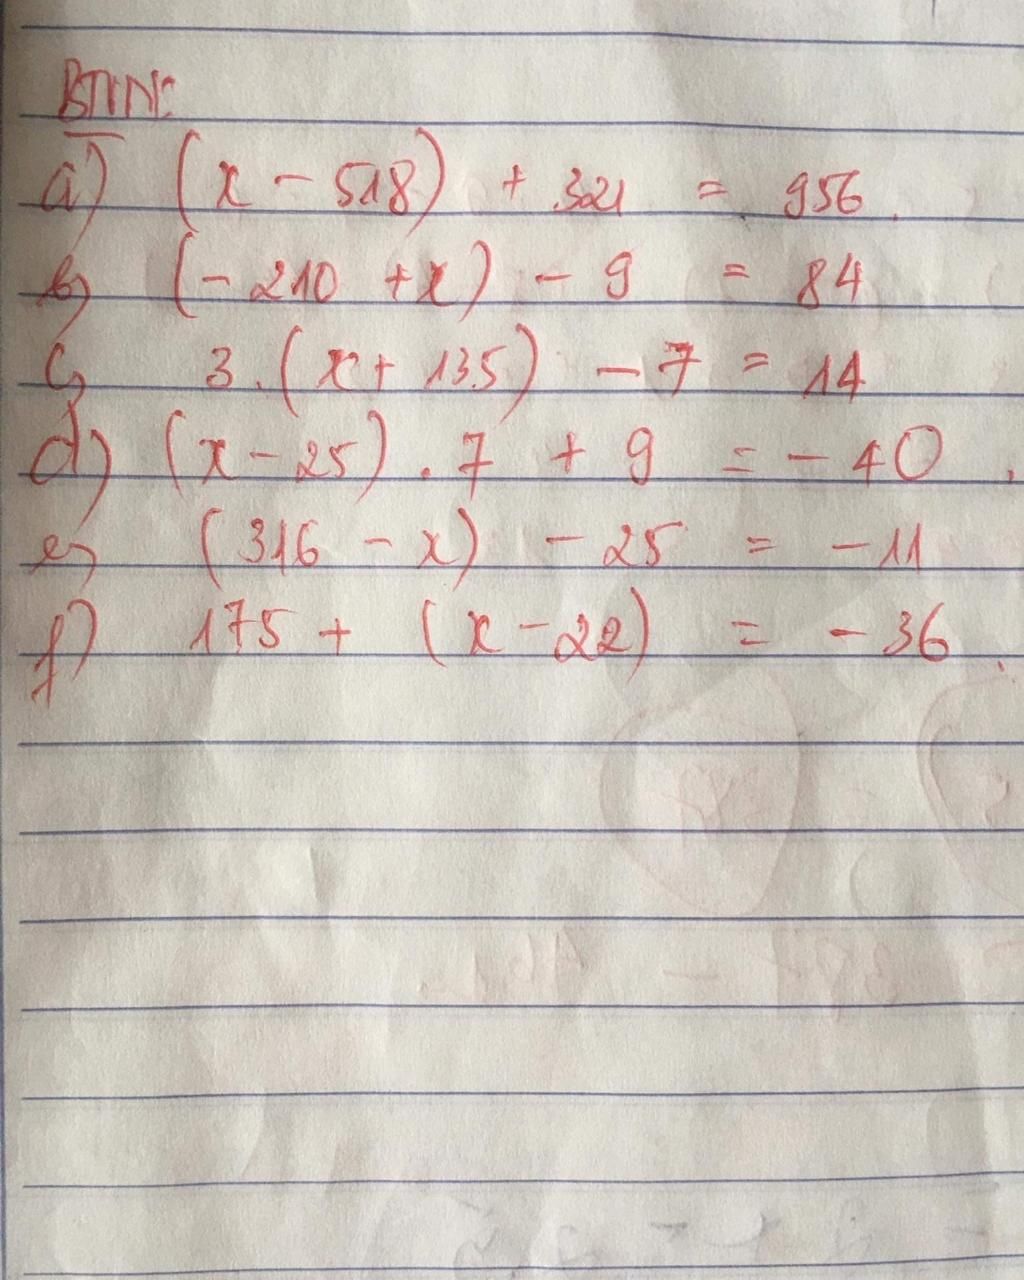 BTVN:
a) (x - 518) + 321 = 956.
b) (- 210 + x) - 9 = 84
c) 3.(x + 135) - 7 = 14
d) (x - 25) . 7 + 9 = - 40.
e) (316 - x) - 25 = - 11
f) 175 + (x - 22) = - 36.